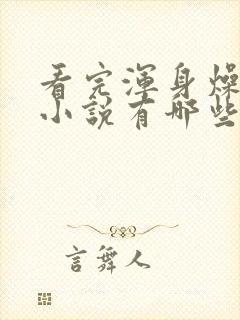 看完浑身燥
小说有哪些
言舞人